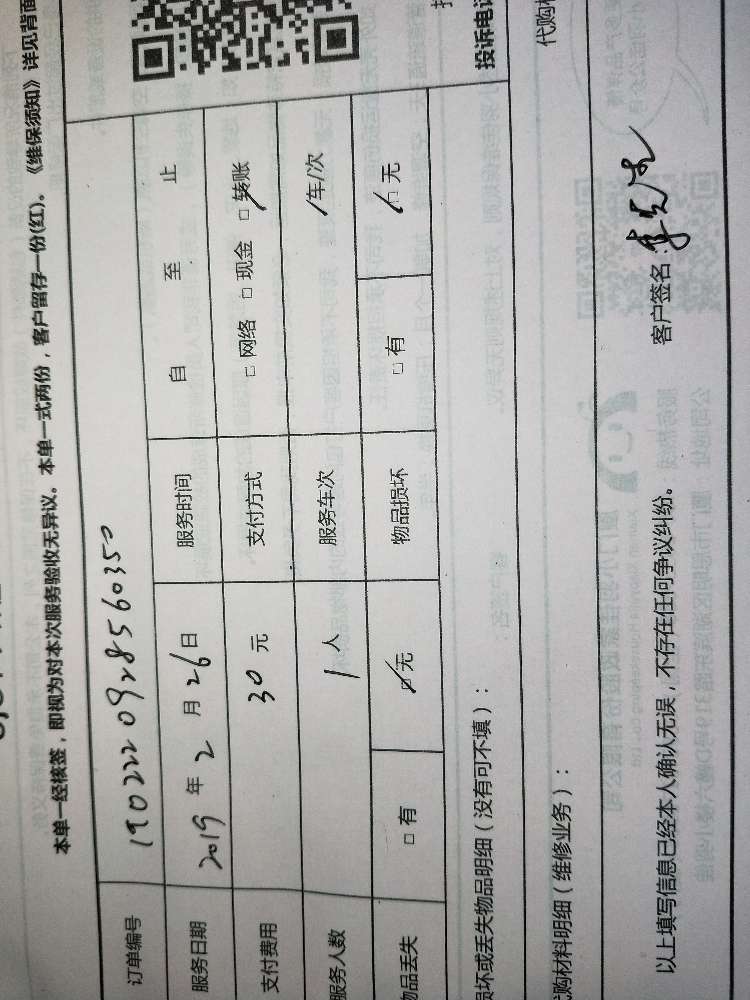 本单一经核签，即视为对本次服务验收无异议。本单一式两份，客户留存一份(红)。《维保须知》详见背面
订单编号 1902220928560350
服务日期 2019 年 2 月 26 日 服务时间 自 至 止
支付费用 30 元 支付方式 □ 网络 □ 现金 □ 转账
服务人数 1 人 服务车次 /车/次
物品丢失 □ 有 □ 无 物品损坏 □ 有 □ 无
损坏或丢失物品明细（没有可不填）： 投诉电话
代购材料明细（维修业务）： 代购
以上填写信息已经本人确认无误，不存在任何争议纠纷。 客户签名：